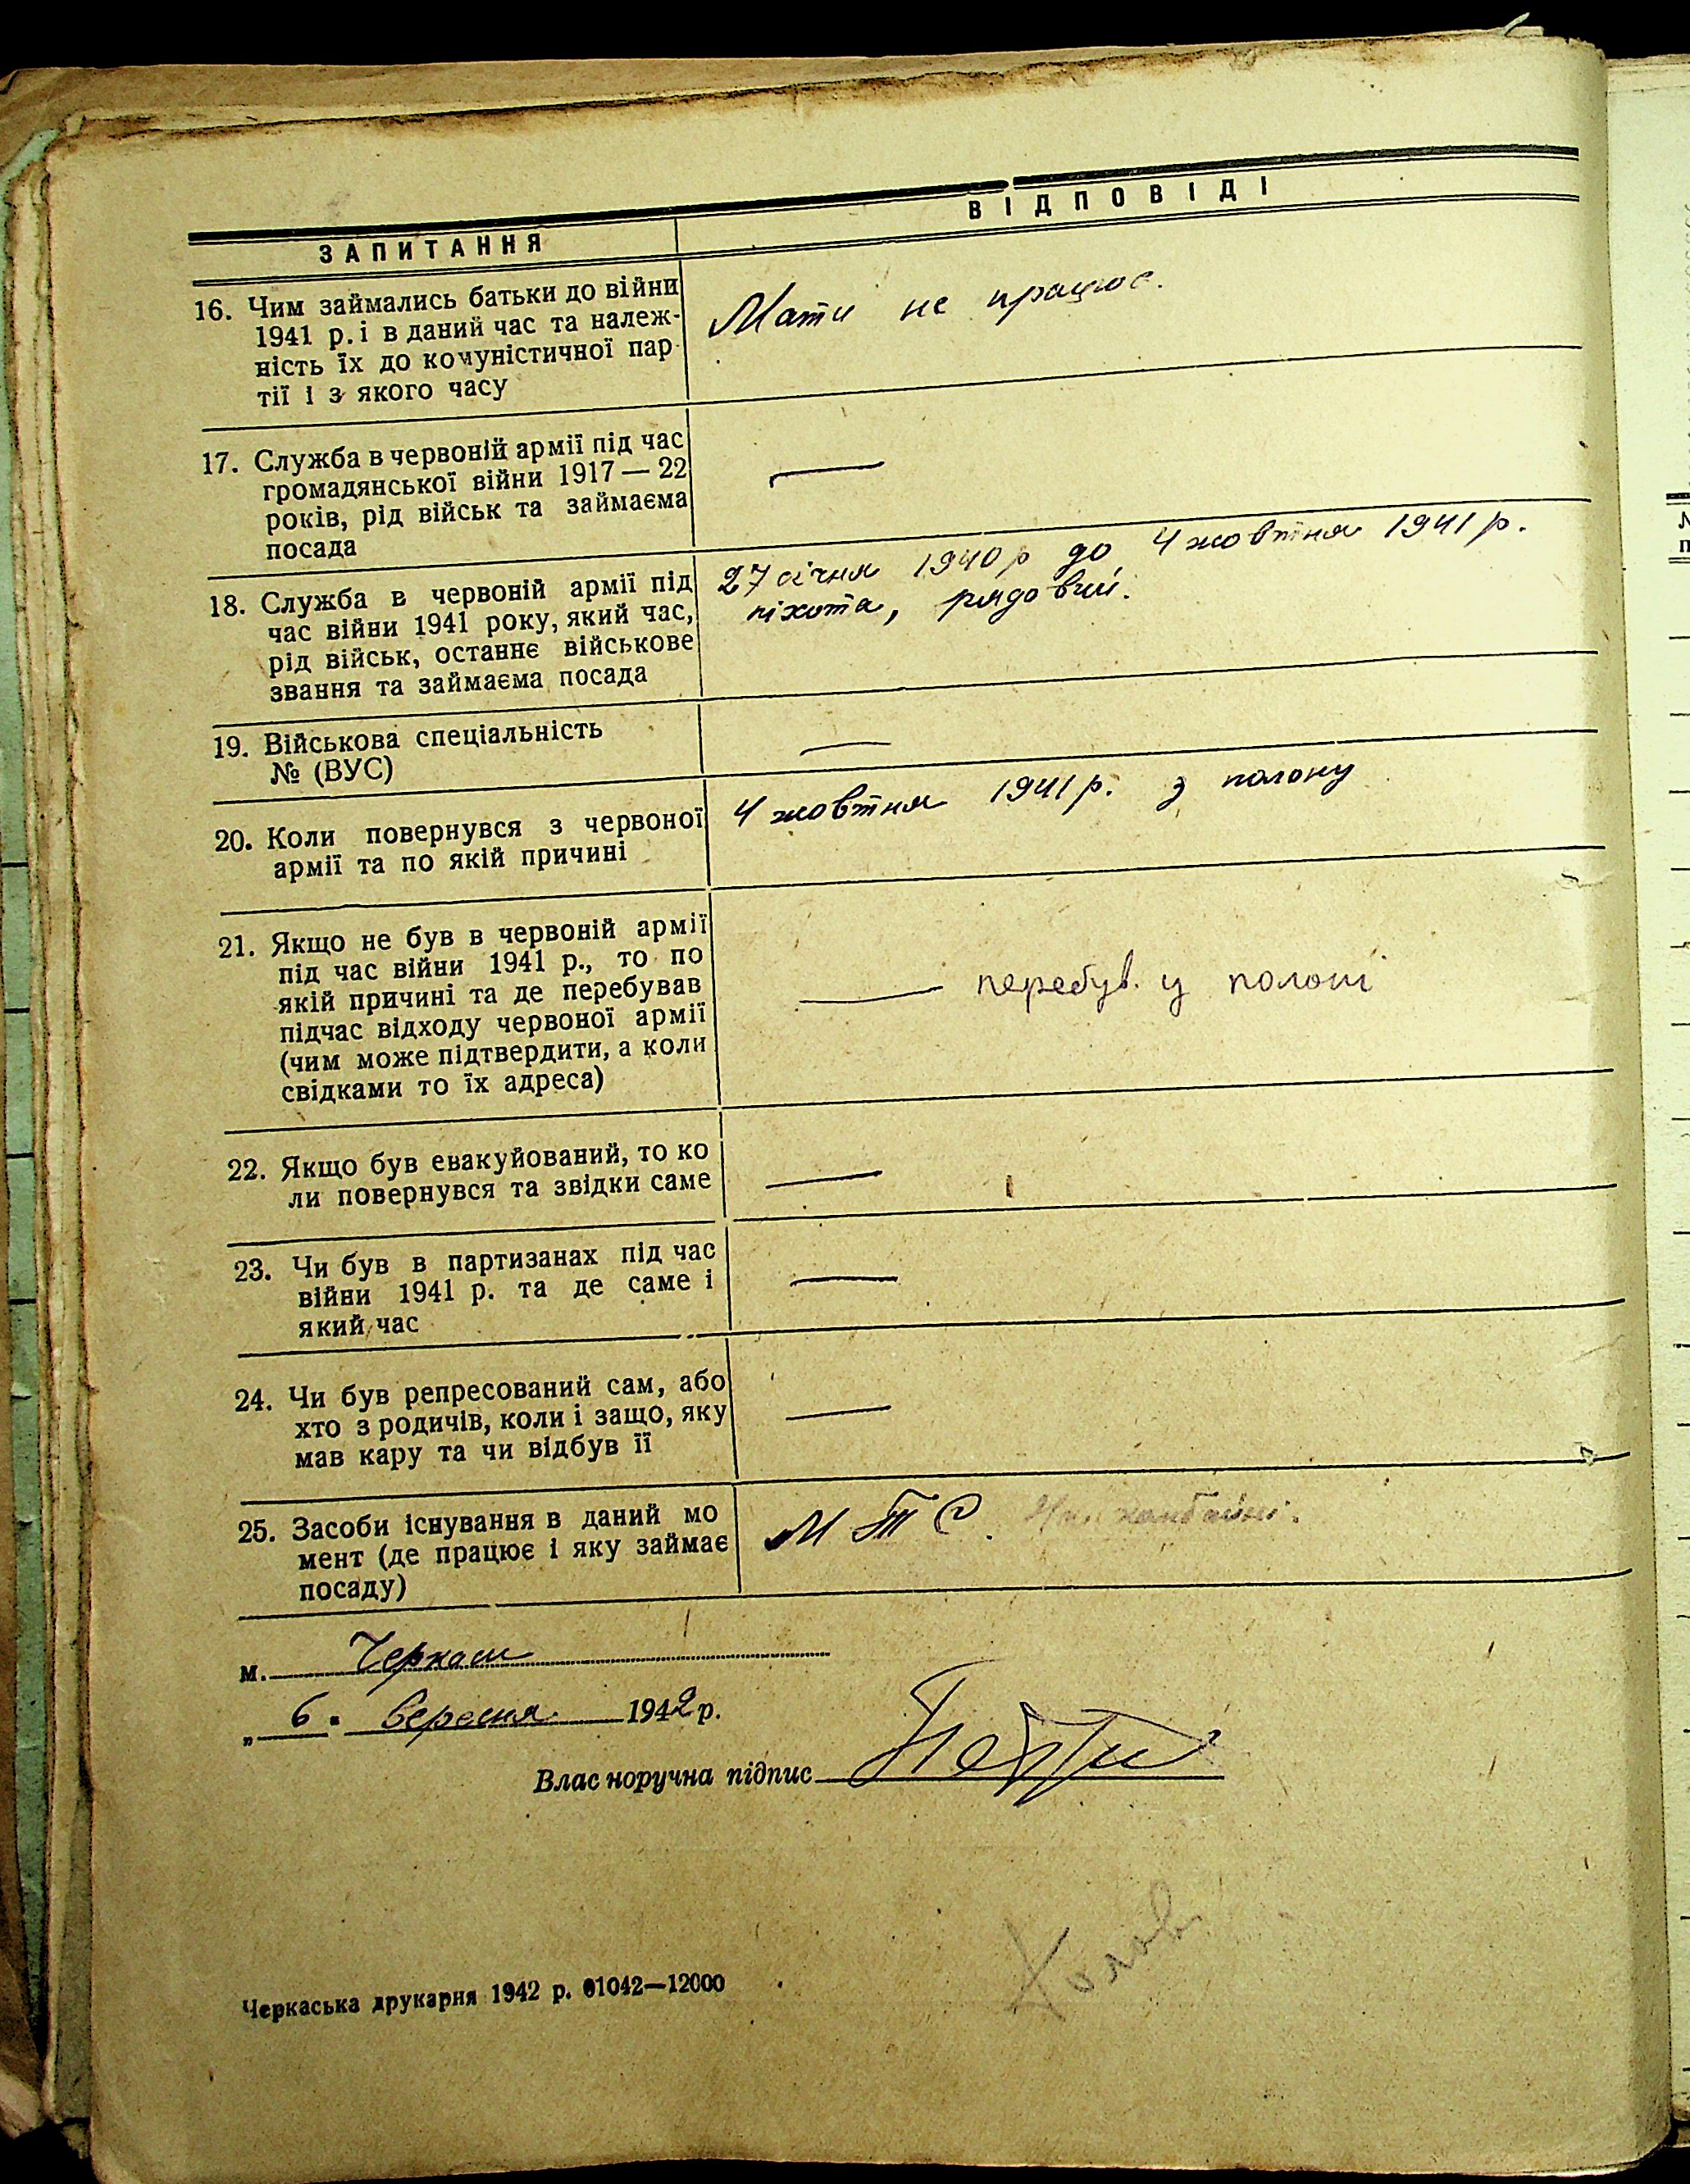 ЗАПИТАННЯ
ВІДПОВІДІ
16. Чим займались батьки до війни
1941 р. і в даний час та належ-
ність їх до комуністичної пар-
тії і з якого часу
Мати не працює.
17. Служба в червоній армії під час
громадянської війни 1917 — 22
років, рід військ та займаєма
посада
—
18. Служба в червоній армії під
час війни 1941 року, який час,
рід військ, останнє військове
звання та займаєма посада
27 січня 1940 р до 4 жовтня 1941 р.
піхота, рядовий.
19. Військова спеціальність
№ (ВУС)
—
20. Коли повернувся з червоної
армії та по якій причині
4 жовтня 1941 р. з полону
21. Якщо не був в червоній армії
під час війни 1941 р., то по
якій причині та де перебував
підчас відходу червоної армії
(чим може підтвердити, а коли
свідками то їх адреса)
— перебув. у полоні
22. Якщо був евакуйований, то ко
ли повернувся та звідки саме
—
23. Чи був в партизанах під час
війни 1941 р. та де саме і
який час
—
24. Чи був репресований сам, або
хто з родичів, коли і защо, яку
мав кару та чи відбув її
—
25. Засоби існування в даний мо
мент (де працює і яку займає
посаду)
МТС.
м. Черкаси
„ 6 " вересня 1942 р.
Власноручна підпис
Черкаська друкарня 1942 р. 01042—12000